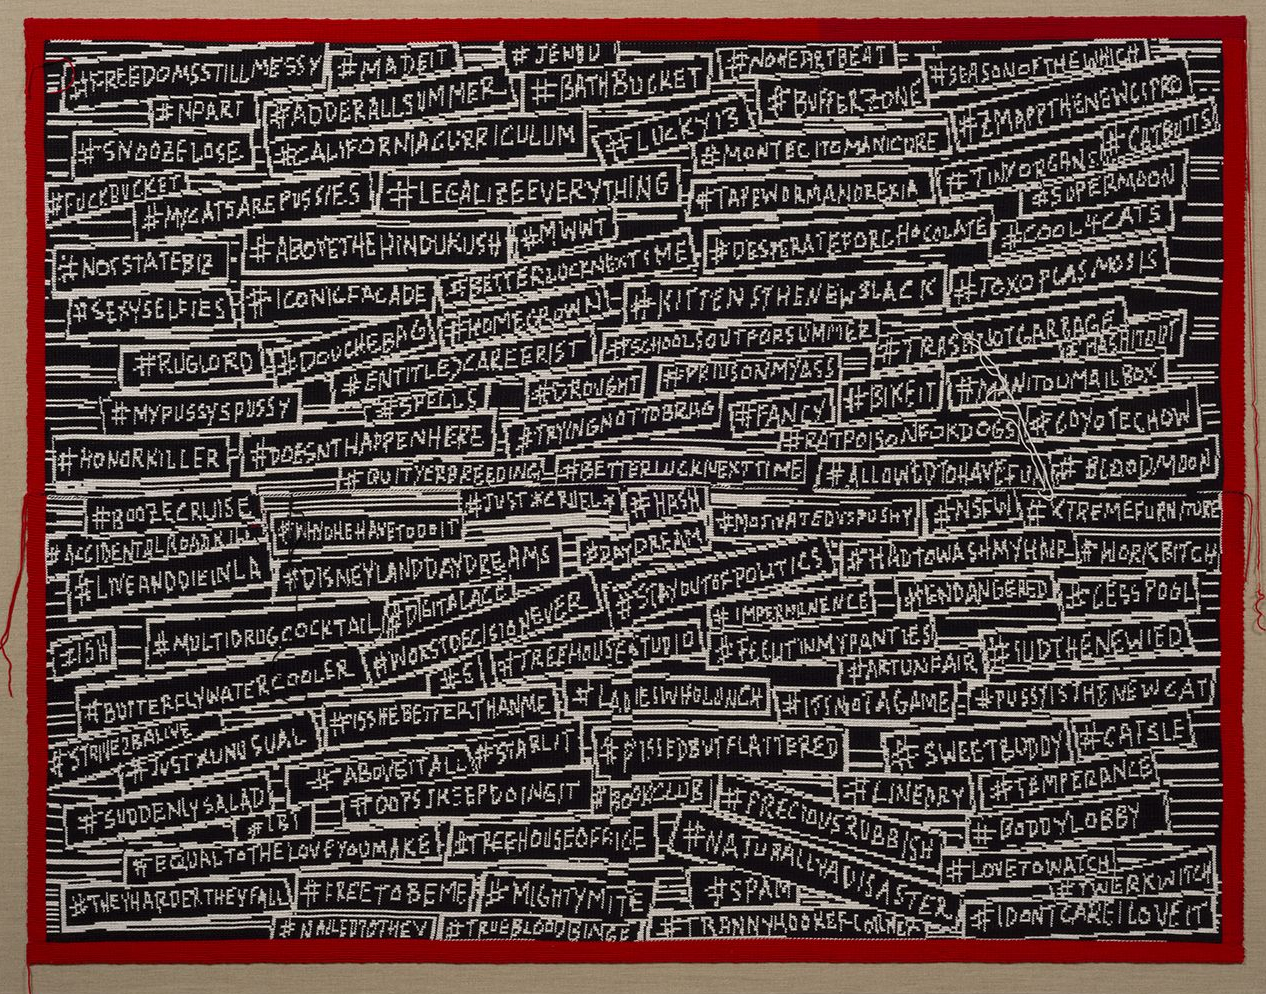 #FREEDOMSSTILLMESSY #MADEIT #NOHEARTBEAT #SEASONOFTHEWHICH
#NPART #ADDERALLSUMMER #BATHBUCKET #BUFFERZONE #ZMAPPTHENEWCIPRO
#SNOOZELOSE #CALIFORNIACURRICULUM #LUCKY13 #MONTECITOMANICURE #TINYORGANS #CATBUTTS
#FUCKBUCKET #MYCATSAREPUSSIES #LEGALIZEEVERYTHING #TAPEWORMANOREXIA #SUPERMOON
#NOTSTATEBIZ #ABOVETHEHINDUKUSH #MWWT #DESPERATEFORCHOCOLATE #COOL4CATS
#SEXYSELFIES #ICONICFACADE #BETTERLUCKNEXTTIME #KITTENSTHENEWBLACK #TOXOPLASMOSIS
#RUGLORD #DOUCHEBAG #HOMEGROWN #SCHOOLSOUTFORSUMMER
#ENTITLEDCAREERIST #PRIUSONMYASS
#MYPUSSYSPUSSY #SPELLS #DROUGHT #FANCY #BIKFIT
#HONORKILLER #DOESNTHAPPENHERE #TRYINGNOTTOBRAG #RATPOISONFORDOGS #COYOTECHOW
#QUITYERBREEDING #BETTERLUCKNEXTTIME #BLOODMOON
#BOOZECRUISE #JUSTXCRUELX #HASH #MOTIVATEDVSPUSHY #NSFW #XTREMEFURNITURE
#ACCIDENTALROADKILL #WHYDHEHAVETODOIT #DAYDREAM #HADTOWASHMYHAIR #WORKBITCH
#LIVEANDDIEINLA #DISNEYLANDDAYDREAMS #STAYOUTOFPOLITICS #ENDANGERED #CESSPOOL
#ISH #MULTIDRUGCOCKTAIL #DIGITALAGE #WORSTDECISIONEVER #IMPERMANENCE
#TREEHOUSESTUDIO #FECUTINMYPANTIES #ARTUNFAIR #SUDTHENEWIED
#BUTTERFLYWATERCOOLER #SI #LADIESWHOLUNCH #ITSNOTAGAME #PUSSYISTHENEWCAT
#STRIVE2BALIVE #JUSTXUNUSUAL #ISSHEBETTERTHANME #STARLIT #PISSEDBUTFLATTERED #SWEETBUDDY #CATSLE
#ABOVEITALL #LINEDRY #TEMPERANCE
#SUDDENLYSALAD #OOPSIKEEPDOINGIT #BOOKCLUB #PRECIOUSRUBBISH #BODDYLOBBY
#EQUALTOTHELOVEYOUMAKE #TREEHOUSEOFFICE #NATURALLYADISASTER #LOVETOWATCH
#THEYHARDERTHEYFALL #FREETOBEME #MIGHTYMITE #SPAM #TWERKWITCH
#NAILEDTOTHEV #TRUEBLOODGINGE #IDONTCAREILOVEIT